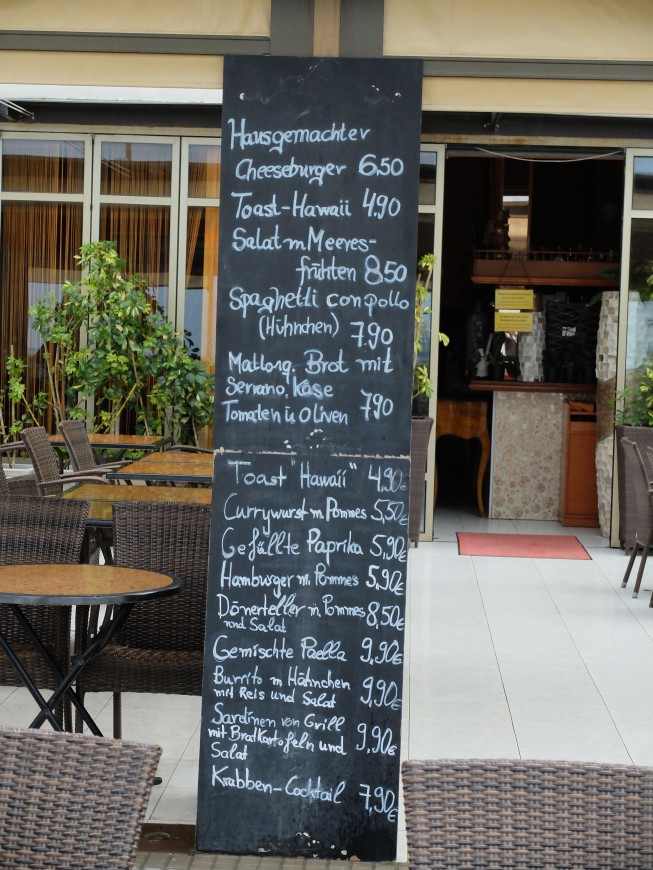 Hausgemachter
Cheeseburger 6,50
Toast-Hawaii 4,90
Salat m Meeres-
früchten 8,50
Spaghetti con pollo
(Hühnchen) 7,90
Mallorq. Brot mit
Serrano, Käse
Tomaten u Oliven 7,90
Toast "Hawaii" 4,90€
Currywurst m. Pommes 5,50€
Gefällte Paprika 5,90€
Hamburger m. Pommes 5,90€
Dönerteller m. Pommes 8,50€
und Salat
Gemischte Paella 9,90€
Burrito m Hähnchen
mit Reis und Salat 9,90€
Sardinen von Grill
mit Bratkartofeln und 9,90€
Salat
Krabben-Cocktail 7,90€